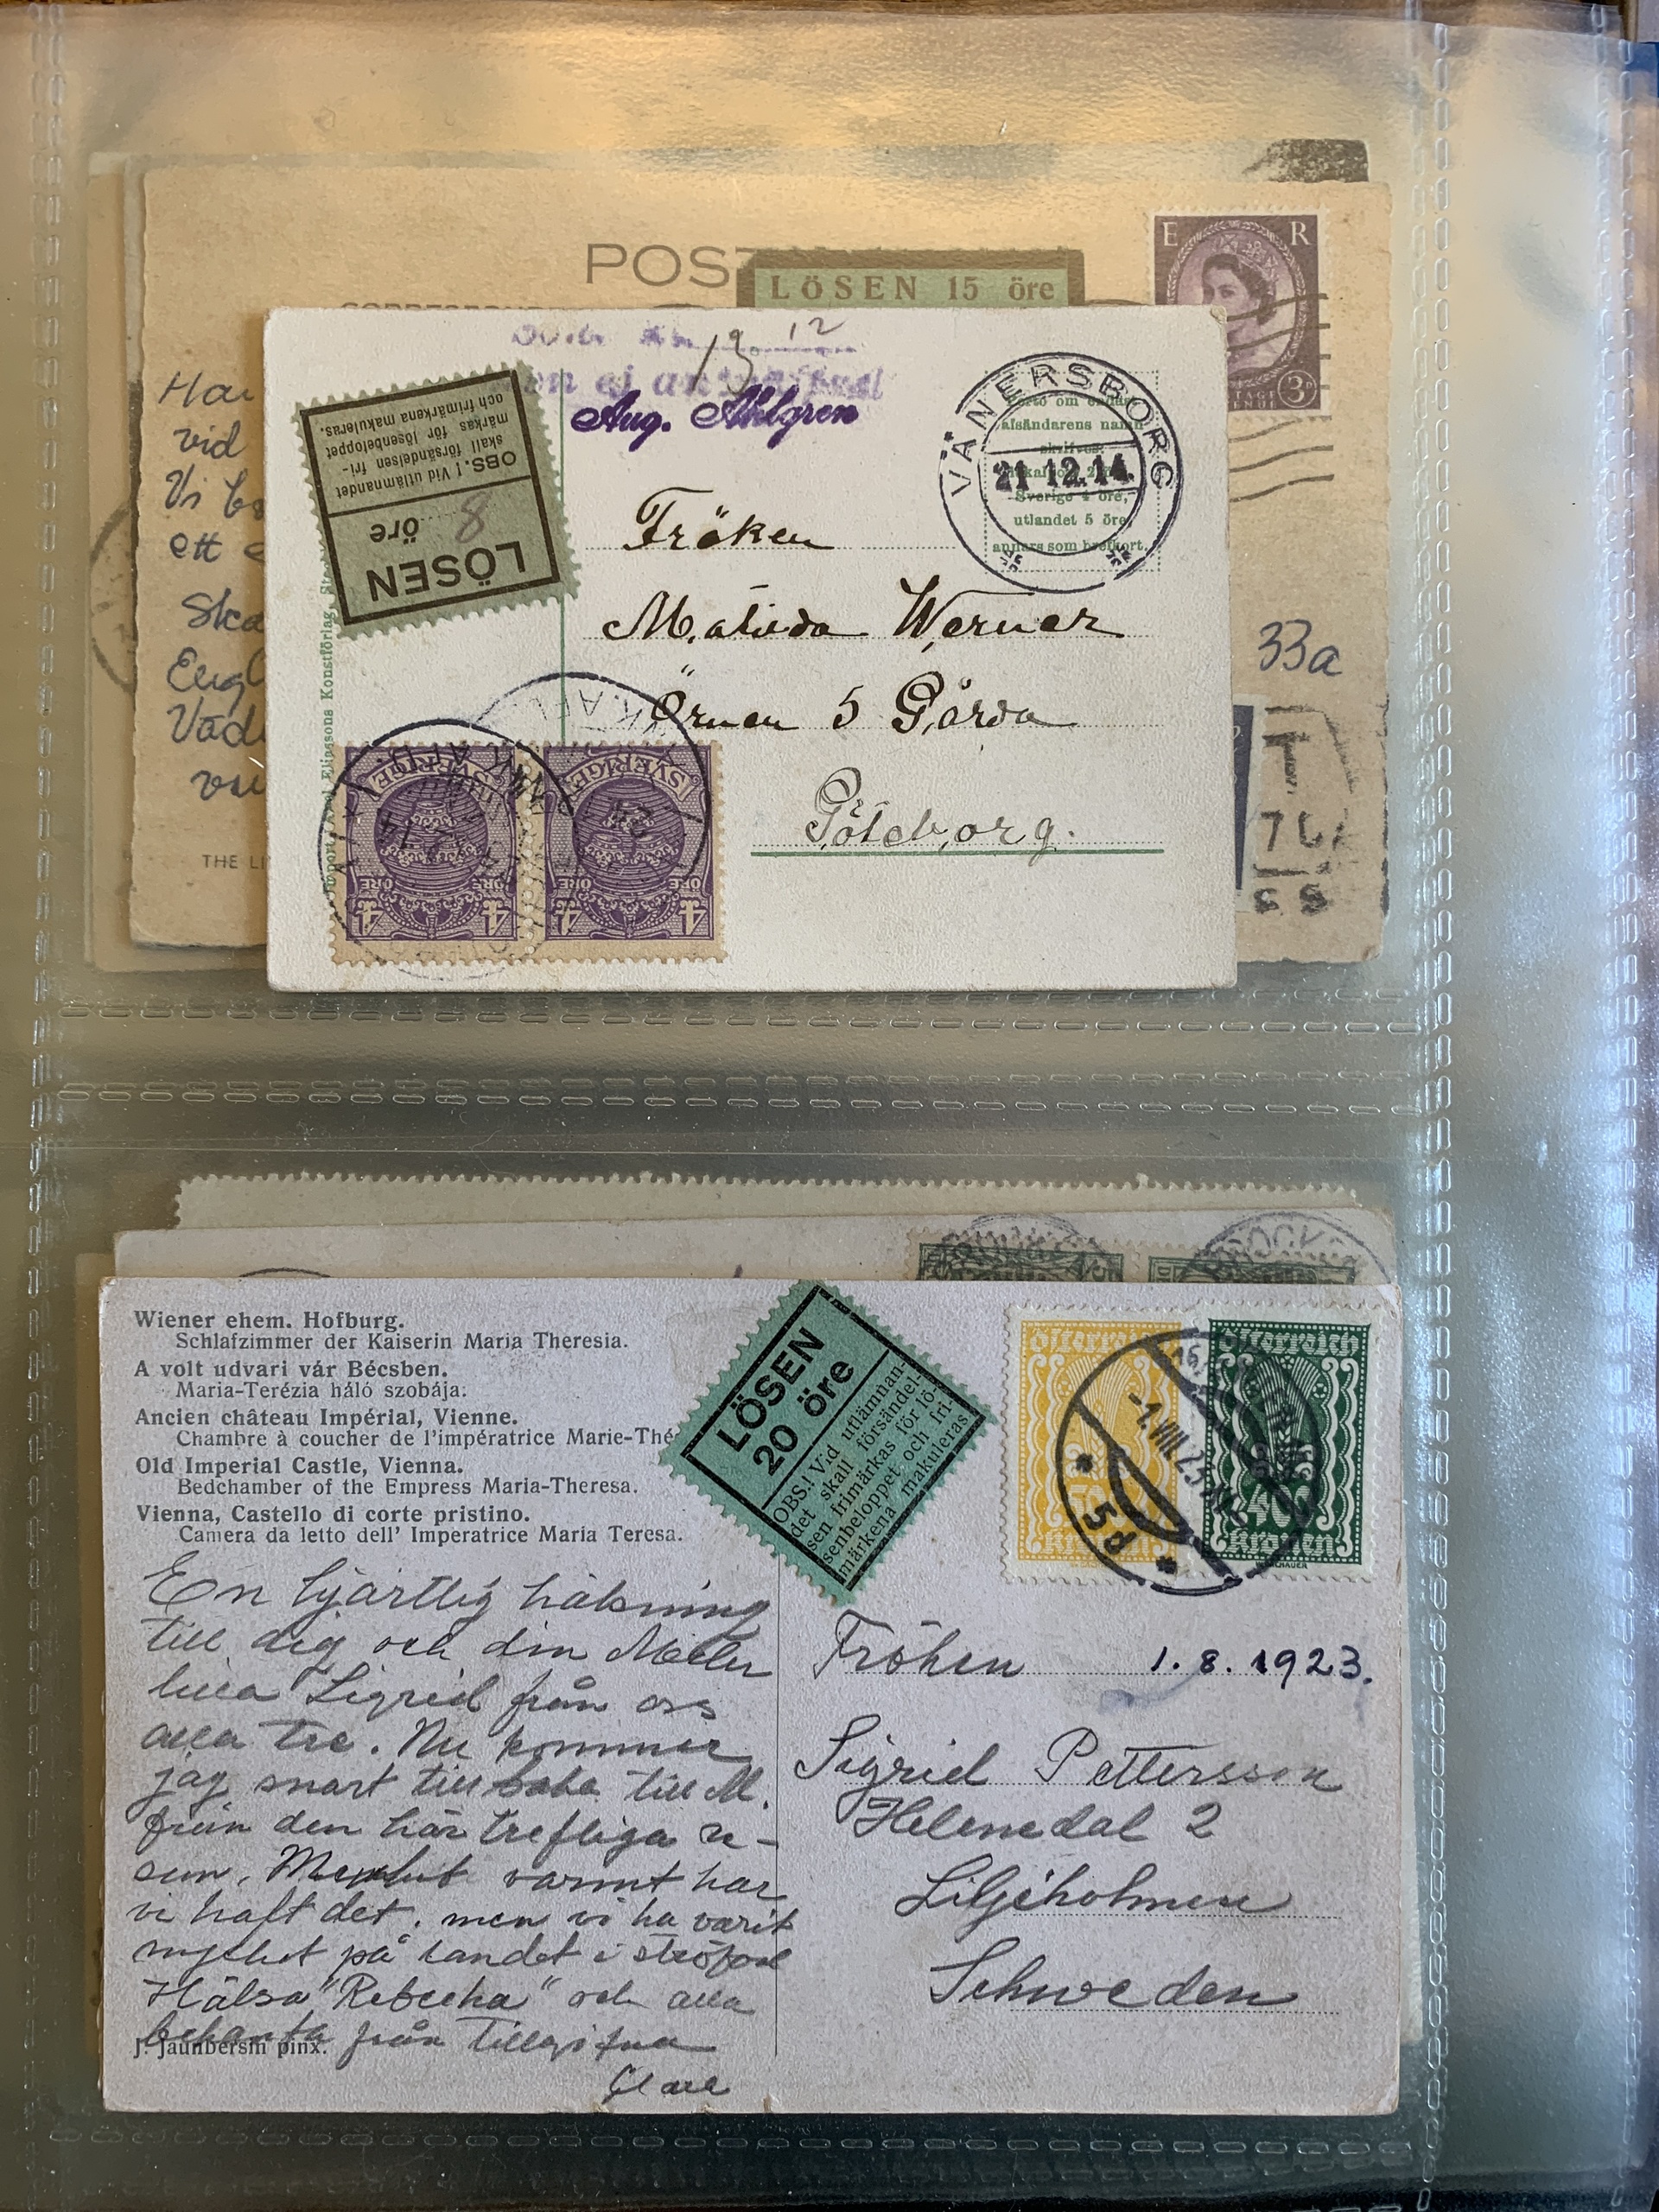 E R
POST
LÖSEN 15 öre
3D
Har
vid
Vi
ett
Ska
Engl
Väd
THE LI
33a
T
13 12
en ej
Aug. Ahlgren
VÄNERSBORG
21 12.14.
afsändarens namn
skrifves:
Sverige 4 öre,
utlandet 5 öre,
annars som brefkort.
LÖSEN
8 öre
OBS.! Vid utlämnandet
skall försändelsen fri-
märkas för lösenbeloppet
och frimärkena makuleras.
Import. Axel Eliassons Konstförlag, Sto
Fröken
Matilda Werner
Örnen 5 Gårda
Göteborg.
SVERIGE SVERIGE
ÖRE ÖRE ÖRE ÖRE
4 4 4 4
Wiener ehem. Hofburg.
Schlafzimmer der Kaiserin Maria Theresia.
A volt udvari vár Bécsben.
Maria-Terézia háló szobája.
Ancien château Impérial, Vienne.
Chambre à coucher de l'impératrice Marie-Thé
Old Imperial Castle, Vienna.
Bedchamber of the Empress Maria-Theresa.
Vienna, Castello di corte pristino.
Camera da letto dell' Imperatrice Maria Teresa.
LÖSEN
20 öre
OBS.! Vid utlämnan-
det skall försändel-
sen frimärkas för lö-
senbeloppet och fri-
märkena makuleras
Österreich Österreich
400
Kronen Kronen
16
-1.VIII.23
* 5d *
En hjärtlig hälsning
till dig och din Moder
lilla Sigrid från oss
alla tre. Nu kommer
jag snart tillbaka till M.
från den här trefliga re-
san. varmt har
vi haft det, men vi ha varit
mycket på landet i
Hälsa "Rebecka" och alla
bekanta från tillgifna
J. Jaunbersin pinx.
Fröken 1.8.1923.
Sigrid Pettersson
Helenedal 2
Liljeholmen
Schweden